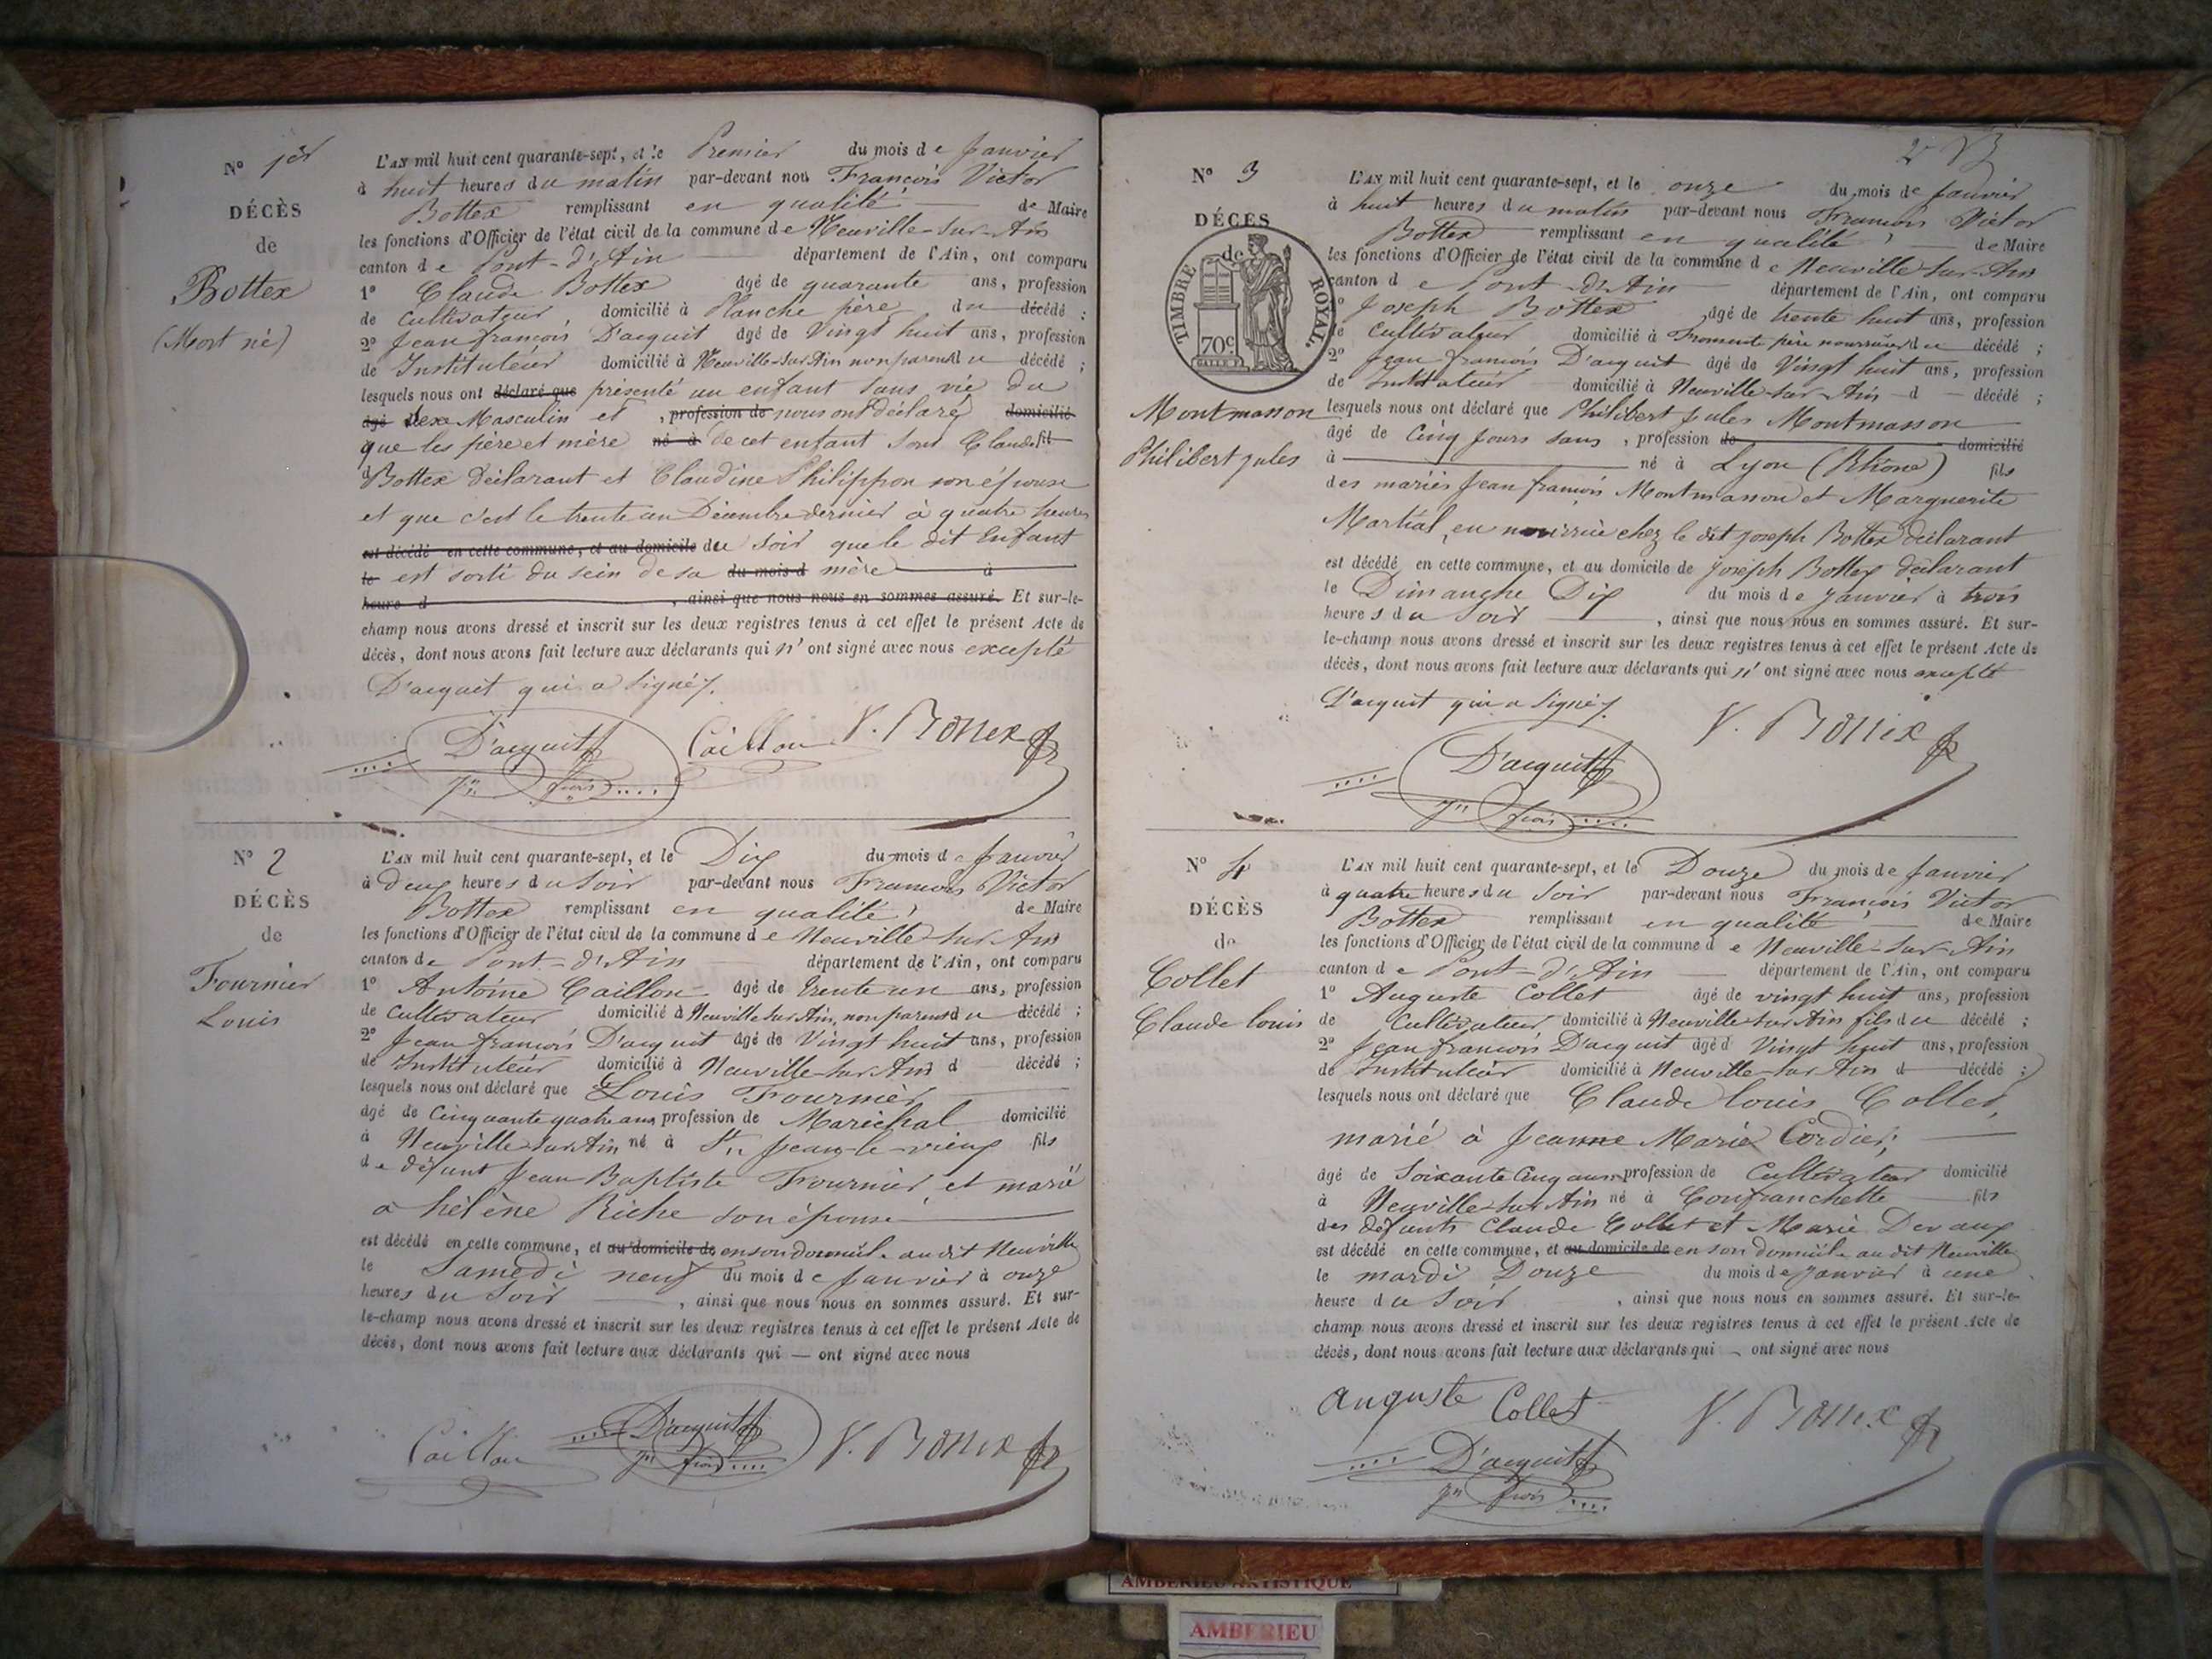 N° 1er
DÉCÈS
de
Bottex
(Mort né)
L'AN mil huit cent quarante-sept, et le Premier du mois de Janvier
à huit heures du matin par-devant nous François Victor
Bottex remplissant en qualité de Maire
les fonctions d'Officier de l'état civil de la commune de Neuville-sur-Ain
canton de Pont-d'Ain département de l'Ain, ont comparu
1° Claude Bottex âgé de quarante ans, profession
de Cultivateur, domicilié à Planche père du décédé ;
2° Jean françois D'acquit âgé de Vingt huit ans, profession
de Instituteur domicilié à Neuville-sur-Ain non parent du décédé ;
lesquels nous ont déclaré que présenté un enfant sans vie du
âgé de sexe Masculin et , profession de nous ont déclaré domicilié
que les père et mère né à de cet enfant sont Claude fil
d Bottex déclarant et Claudine Philippon son épouse
et que c'est le trente un Décembre dernier à quatre heures
est décédé en cette commune, et au domicile de du soir que le dit Enfant
le est sorti du sein de sa du mois d mère à
heure d , ainsi que nous nous en sommes assuré. Et sur-le-
champ nous avons dressé et inscrit sur les deux registres tenus à cet effet le présent Acte de
décès, dont nous avons fait lecture aux déclarants qui n'ont signé avec nous excepté
D'acquit qui a signé.
D'acquit Caillou V. Bottex
Jn fçois
N° 2
DÉCÈS
de
Fournier
Louis
L'AN mil huit cent quarante-sept, et le Dix du mois de Janvier
à deux heures du Soir par-devant nous François Victor
Bottex remplissant en qualité de Maire
les fonctions d'Officier de l'état civil de la commune de Neuville-sur-Ain
canton de Pont-d'Ain département de l'Ain, ont comparu
1° Antoine Caillou âgé de trente un ans, profession
de Cultivateur domicilié à Neuville sur Ain, non parent du décédé ;
2° Jean françois D'acquit âgé de Vingt huit ans, profession
de Instituteur domicilié à Neuville-sur-Ain d décédé ;
lesquels nous ont déclaré que Louis Fournier
âgé de Cinquante quatre ans profession de Maréchal domicilié
à Neuville sur Ain né à St Jean-le-vieux fils
de défunt Jean Baptiste Fournier, et marié
a hélène Riche son épouse
est décédé en cette commune, et au domicile de en son domicile au dit Neuville
le Samedi neuf du mois de Janvier à onze
heures du Soir , ainsi que nous nous en sommes assuré. Et sur-
le-champ nous avons dressé et inscrit sur les deux registres tenus à cet effet le présent Acte de
décès, dont nous avons fait lecture aux déclarants qui — ont signé avec nous
Caillou D'acquit V. Bottex
Jn fçois
N° 3
DÉCÈS
de
TIMBRE ROYAL.
70c
Montmasson
Philibert jules
L'AN mil huit cent quarante-sept, et le onze du mois de Janvier
à huit heures du matin par-devant nous François Victor
Bottex remplissant en qualité de Maire
les fonctions d'Officier de l'état civil de la commune de Neuville-sur-Ain
canton de Pont-d'Ain département de l'Ain, ont comparu
1° Joseph Bottex âgé de trente huit ans, profession
de Cultivateur domicilié à Fromente père nourricier du décédé ;
2° Jean françois D'acquit âgé de Vingt huit ans, profession
de Instituteur domicilié à Neuville-sur-Ain d décédé ;
lesquels nous ont déclaré que Philibert Jules Montmasson
âgé de Cinq jours sans , profession de domicilié
à né à Lyon (Rhône) fils
des mariés Jean françois Montmasson et Marguerite
Martial, en nourrice chez le dit joseph Bottex déclarant
est décédé en cette commune, et au domicile de joseph Bottex déclarant
le Dimanche Dix du mois de Janvier à trois
heures du Soir , ainsi que nous nous en sommes assuré. Et sur-
le-champ nous avons dressé et inscrit sur les deux registres tenus à cet effet le présent Acte de
décès, dont nous avons fait lecture aux déclarants qui n'ont signé avec nous excepté
D'acquit qui a signé.
V. Bottex
D'acquit
Jn fçois
N° 4
DÉCÈS
de
Collet
Claude louis
L'AN mil huit cent quarante-sept, et le Douze du mois de Janvier
à quatre heures du Soir par-devant nous François Victor
Bottex remplissant en qualité de Maire
les fonctions d'Officier de l'état civil de la commune de Neuville-sur-Ain
canton de Pont-d'Ain département de l'Ain, ont comparu
1° Auguste Collet âgé de vingt huit ans, profession
de Cultivateur, domicilié à Neuville-sur-Ain fils du décédé ;
2° Jean françois D'acquit âgé d Vingt huit ans, profession
de Instituteur domicilié à Neuville-sur-Ain d décédé ;
lesquels nous ont déclaré que Claude louis Collet,
marié à Jeanne Marie Cordier,
âgé de Soixante Cinq ans profession de Cultivateur domicilié
à Neuville-sur-Ain né à Confranchette fils
des défunts Claude Collet et Marie Devaux
est décédé en cette commune, et au domicile de en son domicile au dit Neuville
le mardi Douze du mois de Janvier à une
heure du Soir , ainsi que nous nous en sommes assuré. Et sur-le-
champ nous avons dressé et inscrit sur les deux registres tenus à cet effet le présent Acte de
décès, dont nous avons fait lecture aux déclarants qui — ont signé avec nous
Auguste Collet V. Bottex
D'acquit
Jn fçois
AMBERIEU ARTISTIQUE
AMBERIEU